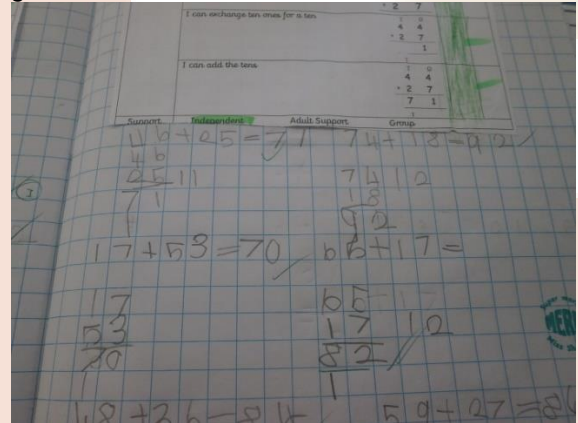 + 2 7
I can exchange ten ones for a ten
T O
4 4
+ 2 7
1
1
I can add the tens
T O
4 4
+ 2 7
7 1
1
Support Independent Adult Support Group
46+25=71 74+18=92
46
25 11
71
1
74 12
18
92
17+53=70 65+17=
17
53
70
1
65
17 12
82
1
48+36=84 59+27=86
MERI